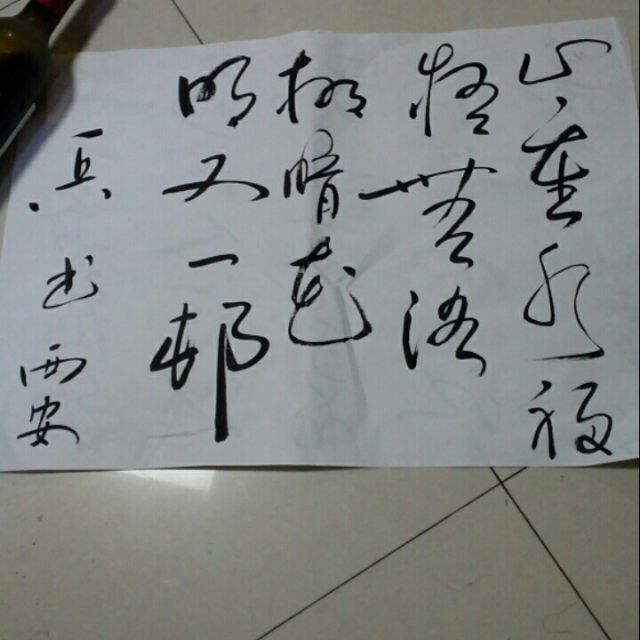 山重水複
疑無路
柳暗花
明又一邨
兵书西安